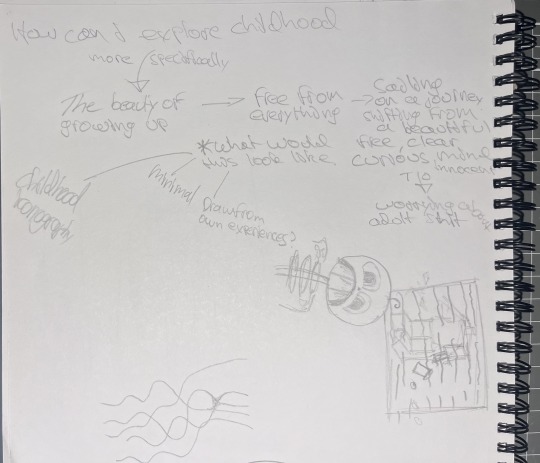 How can I explore childhood
more specifically
The beauty of
growing up
free from
everything
Sailing
on a journey
shifting from
a beautiful
free, clear,
curious, mind
innocent
TO
worrying of
adult shit
*what would
this look like
childhood
iconography
minimal
Draw from
own experiences?